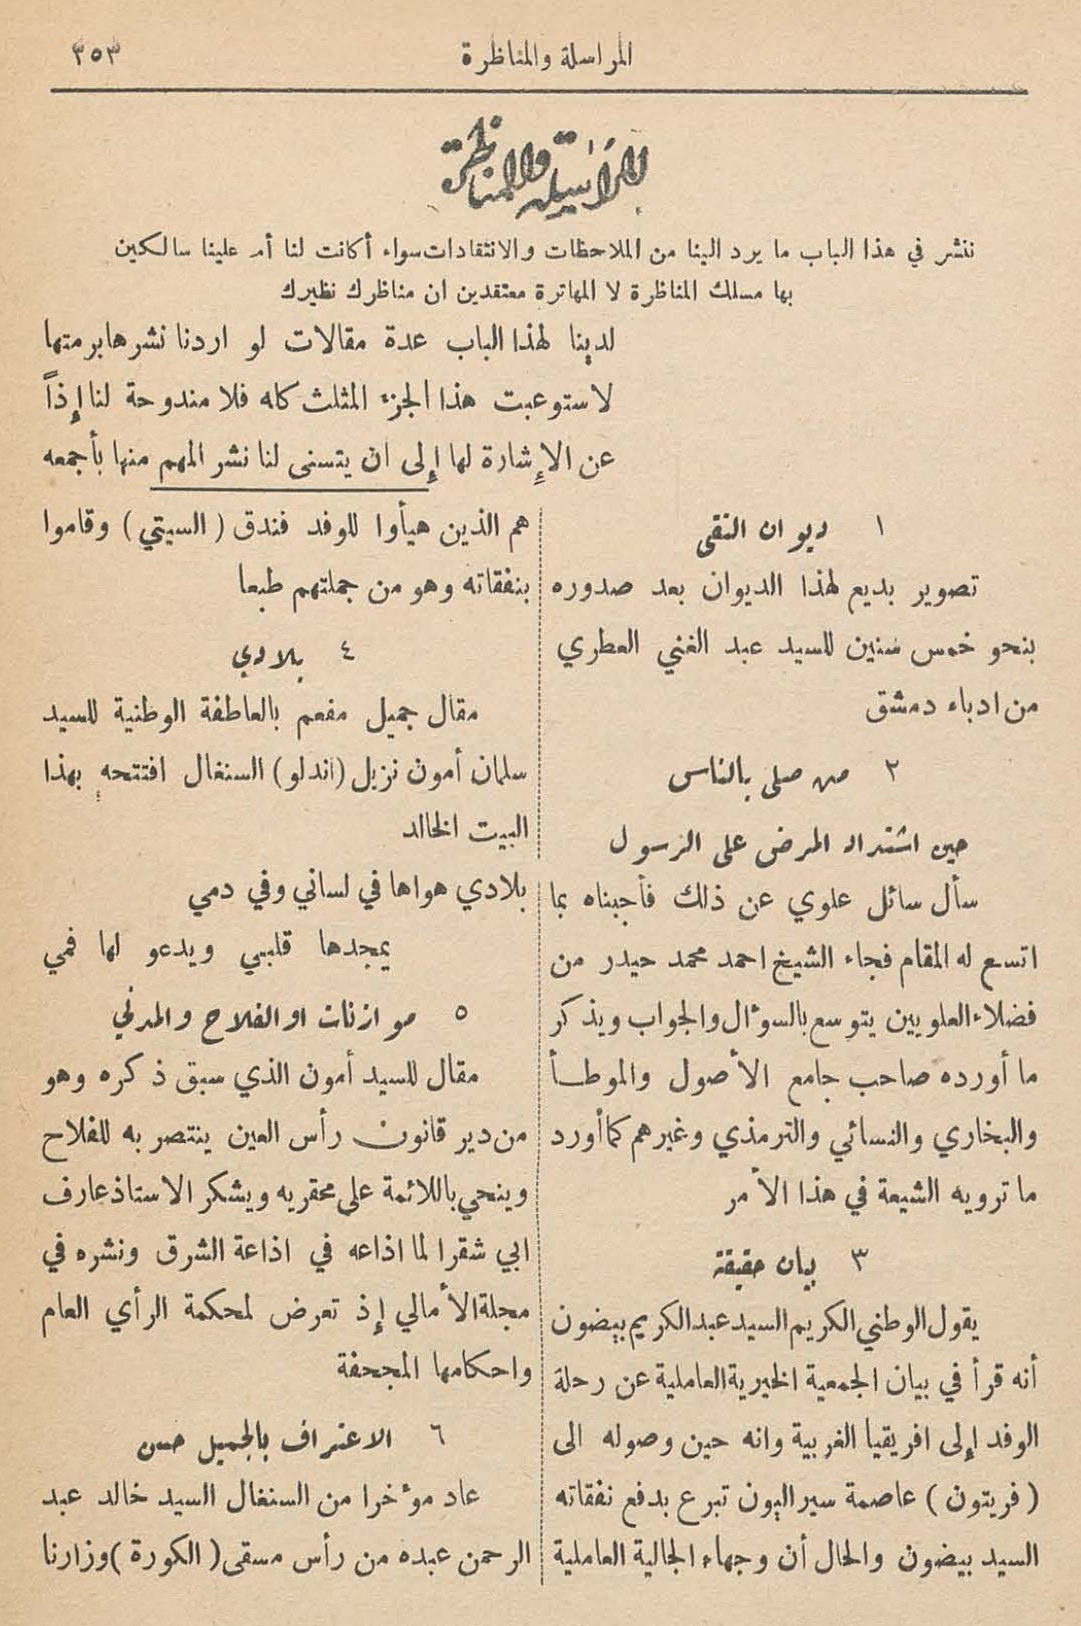 المراسلة والمناظرة ٣٥٣
المراسلة والمناظرة
ننشر في هذا الباب ما يرد الينا من الملاحظات والانتقادات سواء أكانت لنا أم علينا سالكين
بها مسلك المناظرة لا المهاترة معتقدين ان مناظرك نظيرك
لدينا لهذا الباب عدة مقالات لو اردنا نشرها برمتها
لاستوعبت هذا الجزء المثلث كله فلا مندوحة لنا إذاً
عن الإشارة لها إلى ان يتسنى لنا نشر المهم منها بأجمعه
١ ديوان التقى
تصوير بديع لهذا الديوان بعد صدوره
بنحو خمس سنين للسيد عبد الغني العطري
من ادباء دمشق
٢ من صلى بالناس
حين اشتداد المرض على الرسول
سأل سائل علوي عن ذلك فأجبناه بما
اتسع له المقام فجاء الشيخ احمد محمد حيدر من
فضلاء العلويين يتوسع بالسوءال والجواب ويذكر
ما أورده صاحب جامع الأصول والموطأ
والبخاري والنسائي والترمذي وغيرهم كما أورد
ما ترويه الشيعة في هذا الأمر
٣ بيان حقيقة
يقول الوطني الكريم السيد عبد الكريم بيضون
أنه قرأ في بيان الجمعية الخيرية العاملية عن رحلة
الوفد إلى افريقيا الغربية وانه حين وصوله الى
( فريتون ) عاصمة سيراليون تبرع بدفع نفقاته
السيد بيضون والحال أن وجهاء الجالية العاملية
هم الذين هيأوا للوفد فندق ( السيتي ) وقاموا
بنفقاته وهو من جملتهم طبعا
٤ بلادي
مقال جميل مفعم بالعاطفة الوطنية للسيد
سلمان أمون نزيل ( اندلو ) السنغال افتتحه بهذا
البيت الخالد
بلادي هواها في لساني وفي دمي
يمجدها قلبي ويدعو لها فمي
٥ موازنات او الفلاح والمدني
مقال للسيد أمون الذي سبق ذكره وهو
من دير قانون رأس العين ينتصر به للفلاح
وينحي باللائمة على محقريه ويشكر الاستاذ عارف
ابي شقرا لما اذاعه في اذاعة الشرق ونشره في
مجلة الأمالي إذ تعرض لمحكمة الرأي العام
واحكامها المجحفة
٦ الاعتراف بالجميل حسن
عاد موءخرا من السنغال السيد خالد عبد
الرحمن عبده من رأس مسقى ( الكورة ) وزارنا